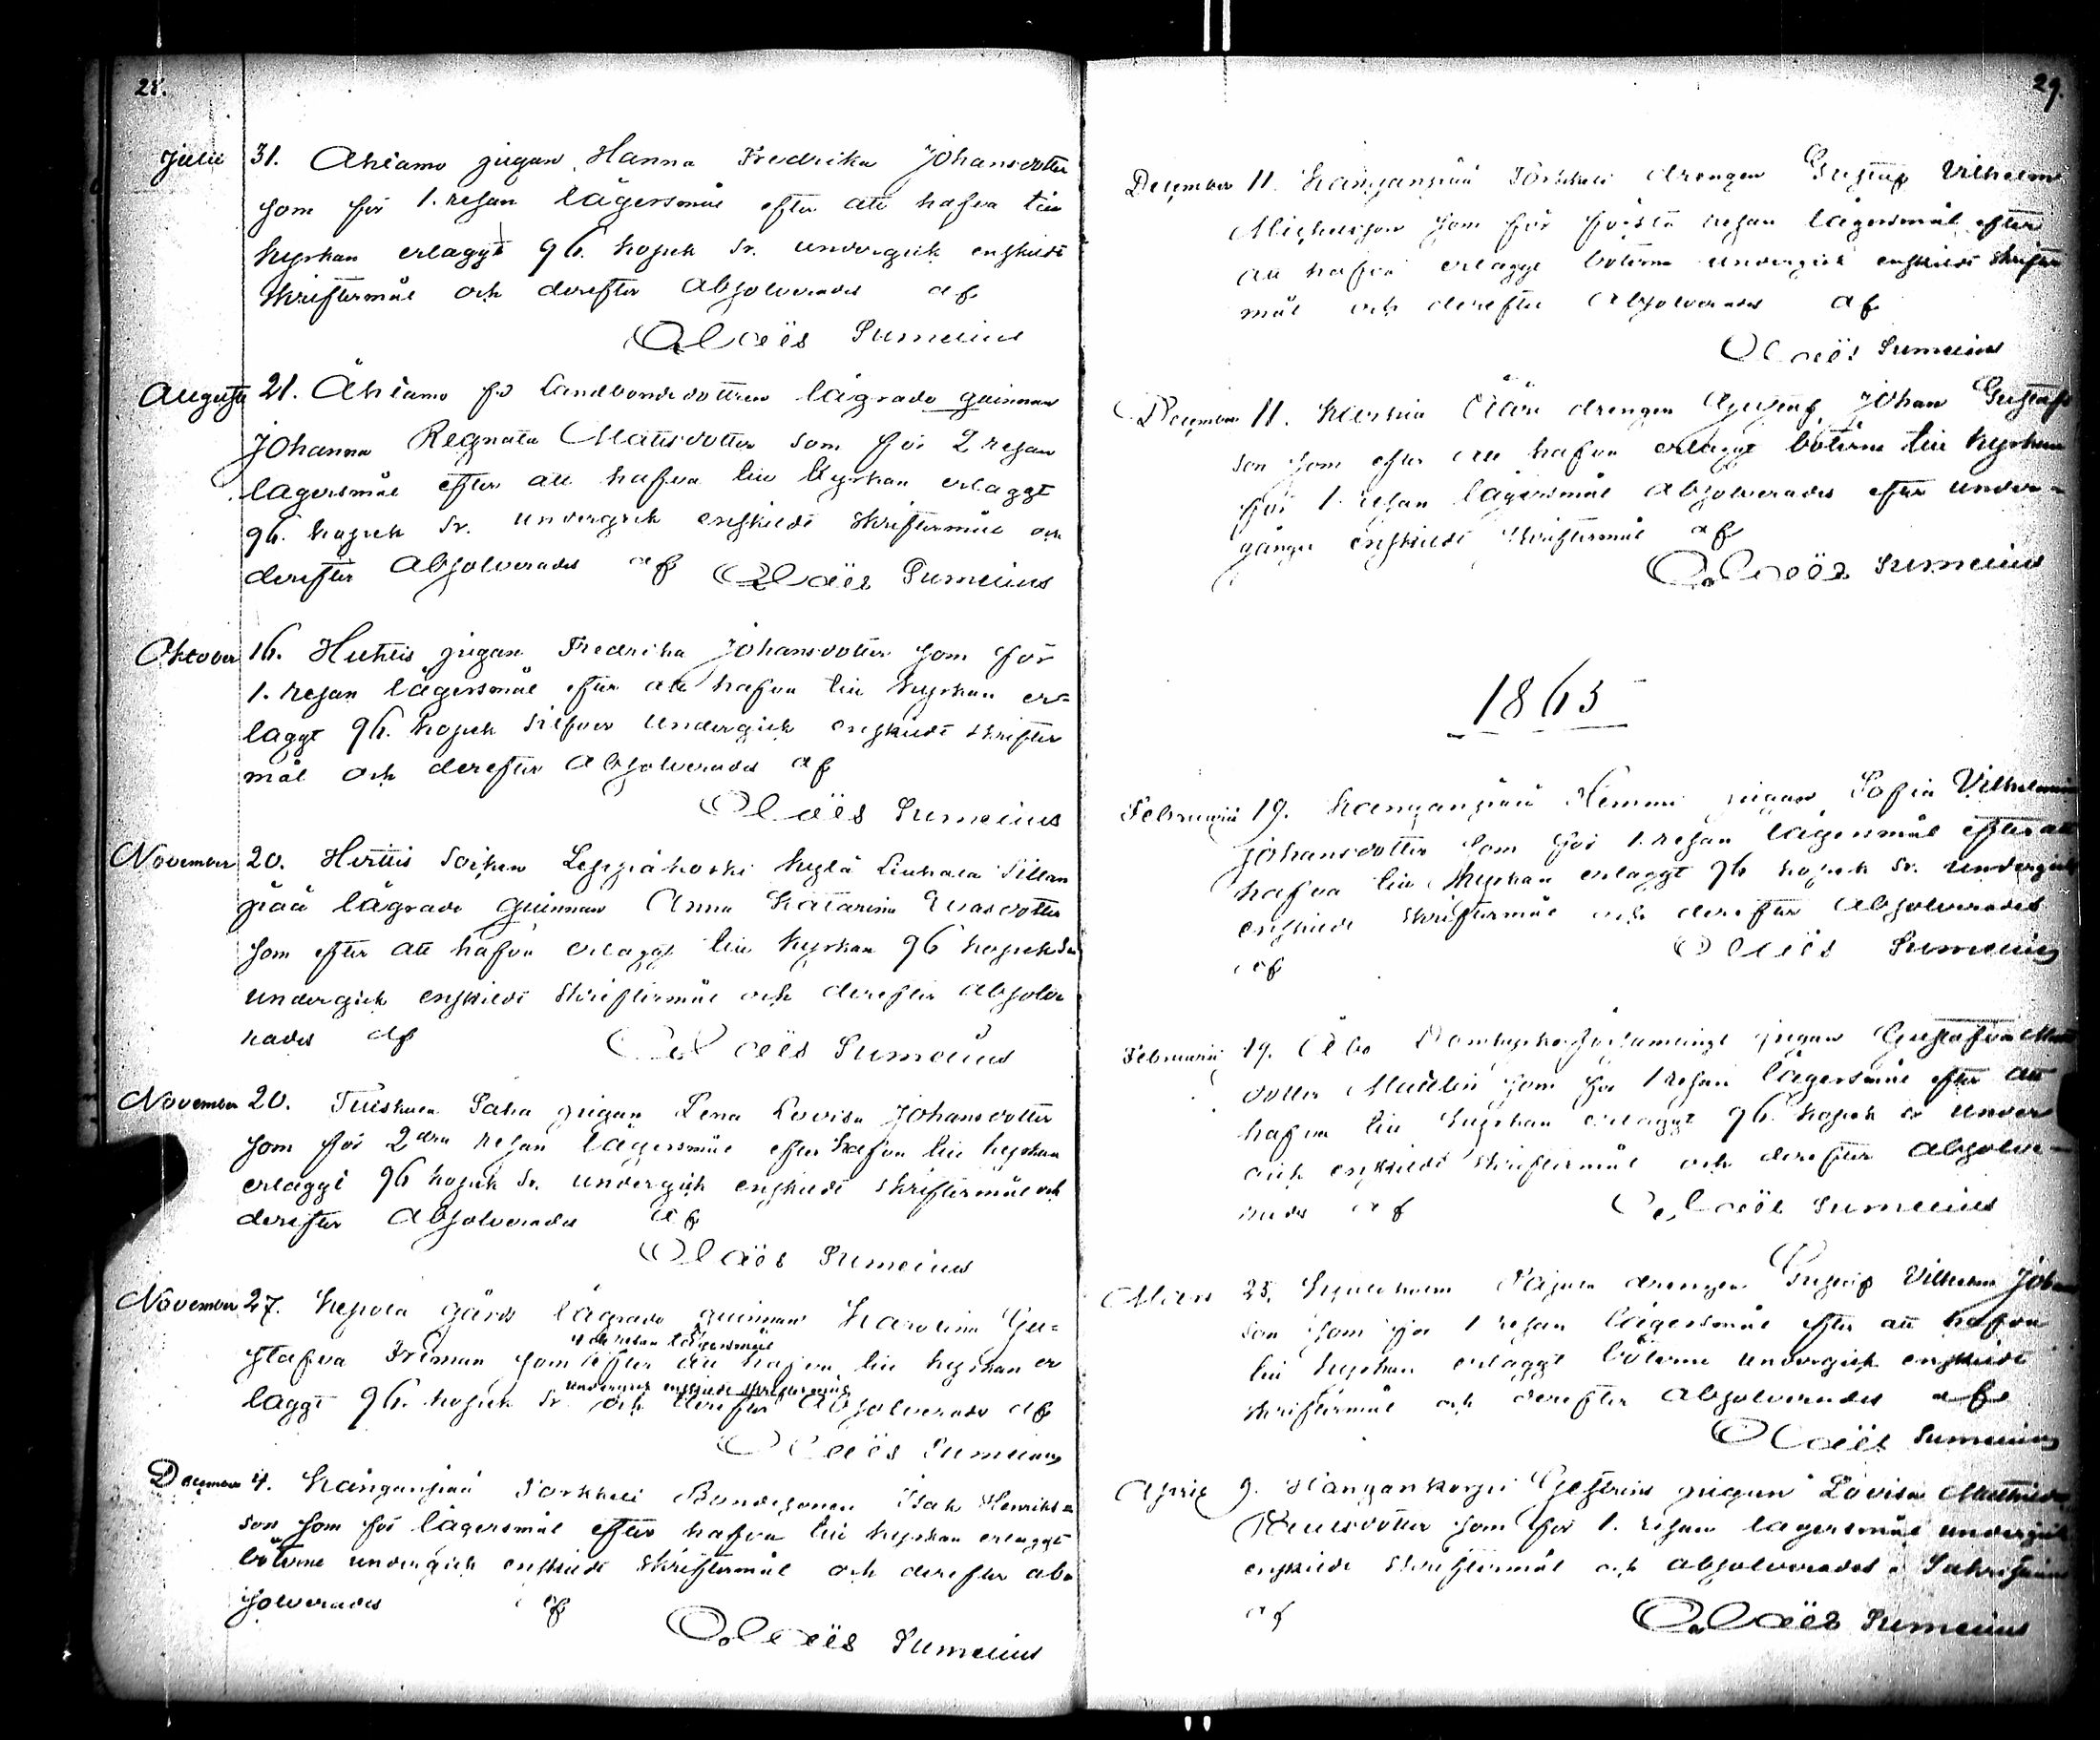 28.
Julii 31. Ahlamo pigan Hanna Fredrika Johansdotter
som för 1. resan lägersmål efter att hafva till
kyrkan erlaggt 96. kopek Sr. undergick enskildt
skriftermål och derefter absolverades af
Claës Sumelius
Augusti 21. Ahlamo fd Landbondedottren lägrade quinnan
Johanna Regnata Mattsdotter som för 2 resan
lägersmål efter att hafva till kyrkan erlaggt
96. kopek Sr. undergick enskildt skriftermål och
derefter absolverades af Claës Sumelius
Oktober 16. Huhtis pigan Fredrika Johansdotter som för
1. resan lägersmål efter att hafva till kyrkan er=
laggt 96. kopek Silfver undergick enskildt skrifter
mål och derefter absolverades af
Claës Sumelius
November 20. Herttis Socken Leppäkoski kylä Sillan
pää lägrade quinnan Anna Katarina Evasdotter
som efter att hafva erlaggt till kyrkan 96 kopek Sr
undergick enskildt skriftermål och derefter absolve
rades af Claës Sumelius
November 20. Saha pigan Lena Lovisa Johansdotter
som för 2dra resan lägersmål efter hafva till kyrkan
erlaggt 96 kopek Sr. undergick enskildt skriftermål och
derefter absolverades af
Claës Sumelius
November 27. Kepola gårds lägrade quinnan Karolina Gu=
resan lägersmål
stafva Friman som efter att hafva till kyrkan er
undergick enskildt skriftermål
laggt 96. kopek Sr. och derefter absolverades af
Claës Sumelius
December 4. Kanganpää Torkkeli Bondesonen Isak Henriks=
son som för lägersmål efter hafva till kyrkan erlaggt
böterne undergick enskildt skriftermål och derefter ab=
solverades af
Claës Sumelius
29.
December 11. Kanganpää Torkkeli drengen Gustaf Vilhelm
Michelsson som för första resan lägersmål efter
att hafva erlaggt böterne undergick enskildt skrifter
mål och derefter absolverades af
Claës Sumelius
December 11. drengen Johan Gustafs
son som efter att hafva erlaggt böterne till kyrkan
för 1. resan lägersmål absolverades efter under=
gånget enskildt skriftermål af
Claës Sumelius
1865
Februarii 19. Kanganpää Hemmi pigan Sofia Vilhelmina
Johansdotter som för 1. resan lägersmål efter att
hafva till kyrkan erlaggt 96 kopek Sr. undergick
enskildt skriftermål och derefter absolverades
af Claës Sumelius
Februarii 19. Åbo Domkyrkoförsamlings pigan Gustafva Matts
dotter som för 1 resan lägersmål efter att
hafva till kyrkan erlaggt 96. kopek Sr under
gick enskildt skriftermål och derefter absolve=
rades af Claës Sumelius
Mars 25. drengen Gustaf Vilhelm Johans
son som för 1 resan lägersmål efter att hafva
till kyrkan erlaggt böterne undergick enskildt
skriftermål och derefter absolverades af
Claës Sumelius
April 9. pigan Lovisa
som för 1. resan lägersmål undergick
enskildt skriftermål och absolverades i Sakristian
af Claës Sumelius